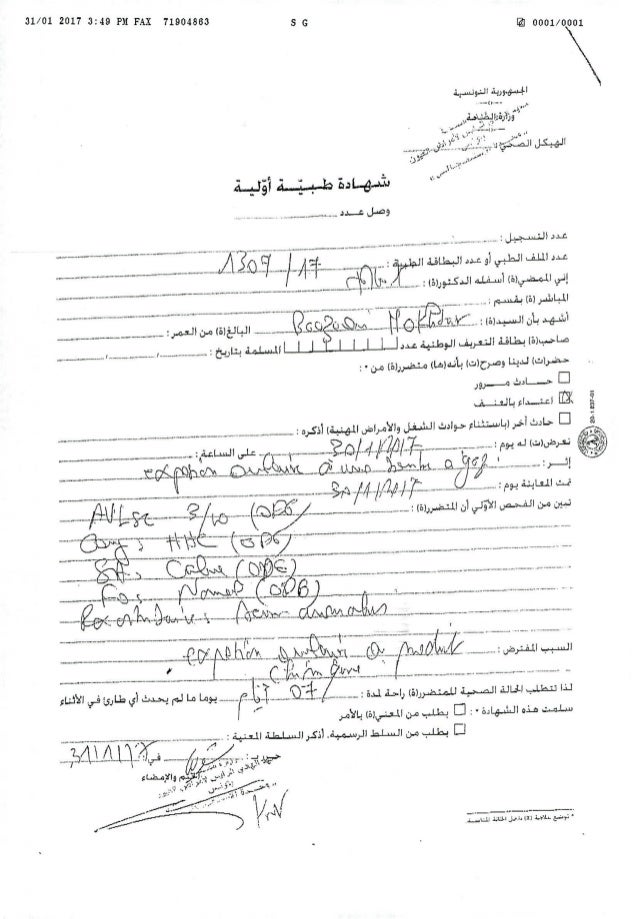 31/01 2017 3:49 PM FAX 71904863 S G 0001/0001
الجمهورية التونسية
وزارة الصحة
الهيكل الصحي
شهادة طبيّة أوّلية
وصل عدد
عدد التسجيل :
عدد الملف الطبي أو عدد البطاقة الطبية : 1307/17
إني الممضي(ة) أسفله الدكتور(ة) :
المباشر(ة) بقسم :
أشهد بأن السيد(ة) : Mokhtar البالغ(ة) من العمر :
صاحب(ة) بطاقة التعريف الوطنية عدد المسلمة بتاريخ :
حضر(ت) لدينا وصرح(ت) بأنه(ها) متضرر(ة) من * :
حادث مرور
اعتداء بالعنف
حادث آخر (باستثناء حوادث الشغل والأمراض المهنية) أذكره :
تعرض(ت) له يوم : 30/1/2017 على الساعة :
إثر : oculaire à une bombe a gaz
تمت المعاينة يوم : 30/1/2017
تبين من الفحص الأولي أن المتضرر(ة) :
AVLsc 3/10 (ODG)
(ODG)
Calme (ODG)
FO: Normal (ODG)
السبب المفترض : oculaire a produit
لذا تتطلب الحالة الصحية للمتضرر(ة) راحة لمدة : 07 أيام يوما ما لم يحدث أي طارئ في الأثناء
سلمت هذه الشهادة * : بطلب من المعني(ة) بالأمر
بطلب من السلط الرسمية، أذكر السلطة المعنية :
حرر بـ : في : 31/1/17
الختم والإمضاء
* توضع علامة (x) داخل الخانة المناسبة